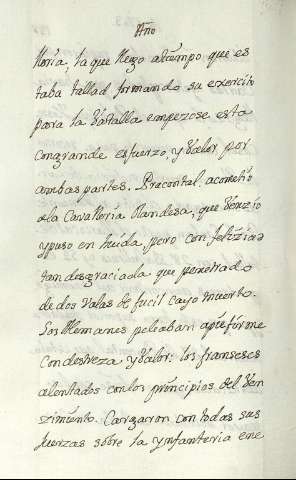 Año
lloria, la que llego altiempo que es
taba tallad formando su exercito
para la batalla empezose esta
congrande esfuerzo, y valor por
ambas partes. Pracontal, acometió
ala Cavalleria olandesa, que venzio
ypuso en huida, pero con felizidad
tandesgraciada que penetrado
de dos valas de fucil cayo muerto.
Los Alemanes peleaban apie firme
condestreza y valor: los franseses
alentados conlos principios del ven
zimiento. Cargaron con todas sus
fuerzas sobre la ynfanteria ene